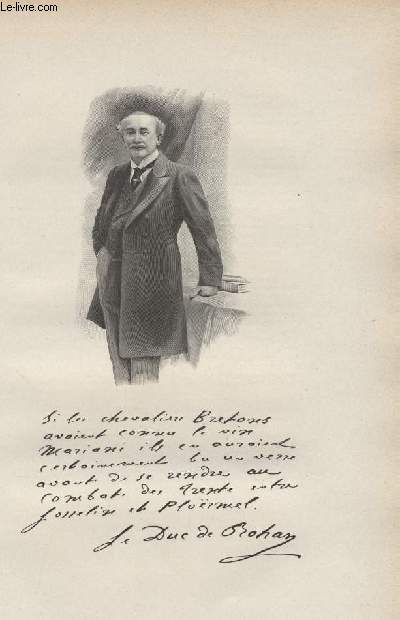 © Le-livre.com
Si les chevaliers Bretons
avaient connu le vin
Mariani ils en auraient
certainement bu un verre
avant de se rendre au
combat des Trente entre
Josselin et Ploërmel.
Le Duc de Rohan